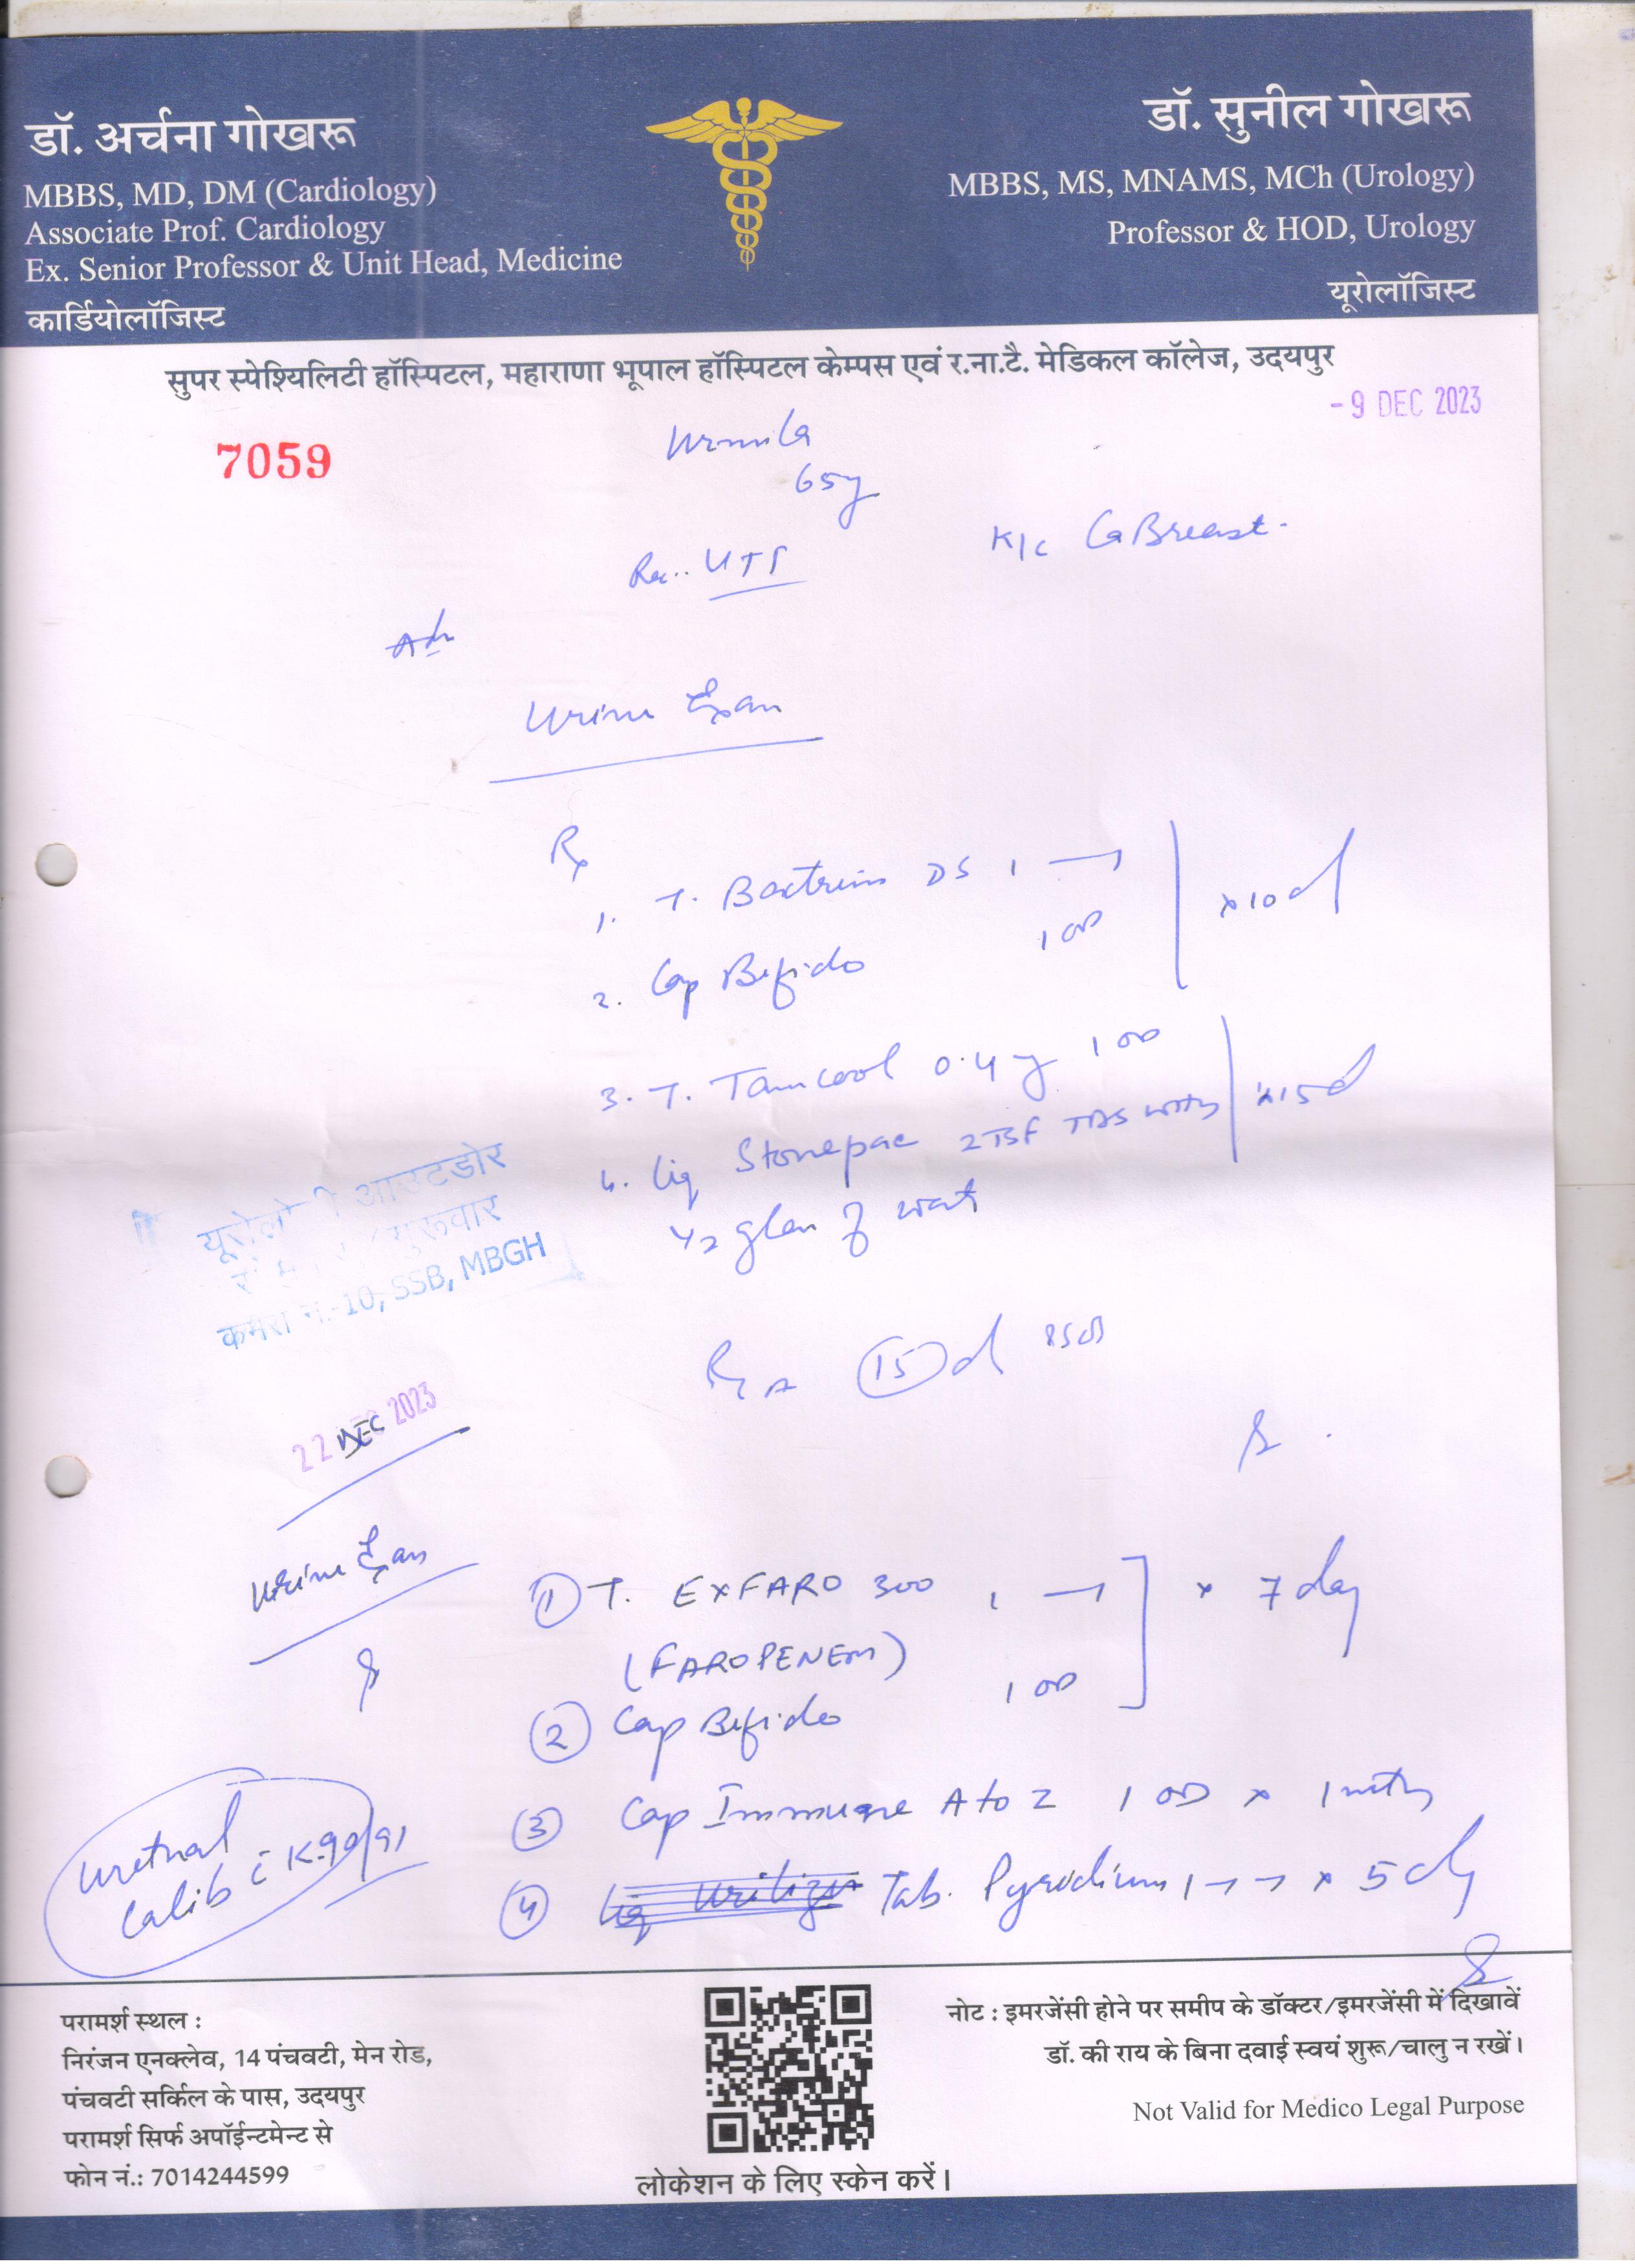 डॉ. अर्चना गोखरू
MBBS, MD, DM (Cardiology)
Associate Prof. Cardiology
Ex. Senior Professor & Unit Head, Medicine
कार्डियोलॉजिस्ट
डॉ. सुनील गोखरू
MBBS, MS, MNAMS, MCh (Urology)
Professor & HOD, Urology
यूरोलॉजिस्ट
सुपर स्पेश्यिलिटी हॉस्पिटल, महाराणा भूपाल हॉस्पिटल केम्पस एवं र.ना.टै. मेडिकल कॉलेज, उदयपुर
- 9 DEC 2023
7059
Urmila
65y
K/c Ca Breast.
Rec.. UTI
Adv
Urine Exam
Rx
1. T. Bactrim DS 1 —
2. Cap Bifido 1 OD
x 10 d
3. T. Tamcool 0.4 1 OD
4. Liq Stonepac 2TSF TDS with
x 15 d
1/2 glass of water
यूरोलो आउटडोर
गुरूवार
कमरा न.-10, SSB, MBGH
R 15 d
22 DEC 2023
Urine Exam
① T. EXFARO 300 1 —
(FAROPENEM)
x 7 day
② Cap Bifido 1 OD
③ Cap Immune A to Z 1 OD x 1 mth
④ Liq Tab. Pyridium 1 — — x 5 d
Urethral
Calib c K-90/91
परामर्श स्थल :
निरंजन एनक्लेव, 14 पंचवटी, मेन रोड,
पंचवटी सर्किल के पास, उदयपुर
परामर्श सिर्फ अपॉईन्टमेन्ट से
फोन नं.: 7014244599
लोकेशन के लिए स्केन करें।
नोट : इमरजेंसी होने पर समीप के डॉक्टर/इमरजेंसी में दिखावें
डॉ. की राय के बिना दवाई स्वयं शुरू/चालु न रखें।
Not Valid for Medico Legal Purpose